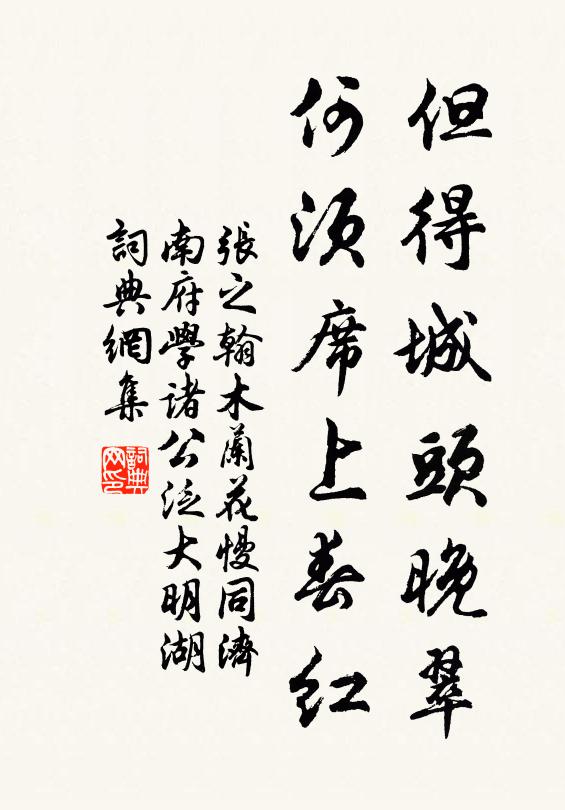 但得城頭晚翠
何須席上春紅
張之翰木蘭花慢同濟
南府學諸公泛大明湖
詞典網集
詞典
网印